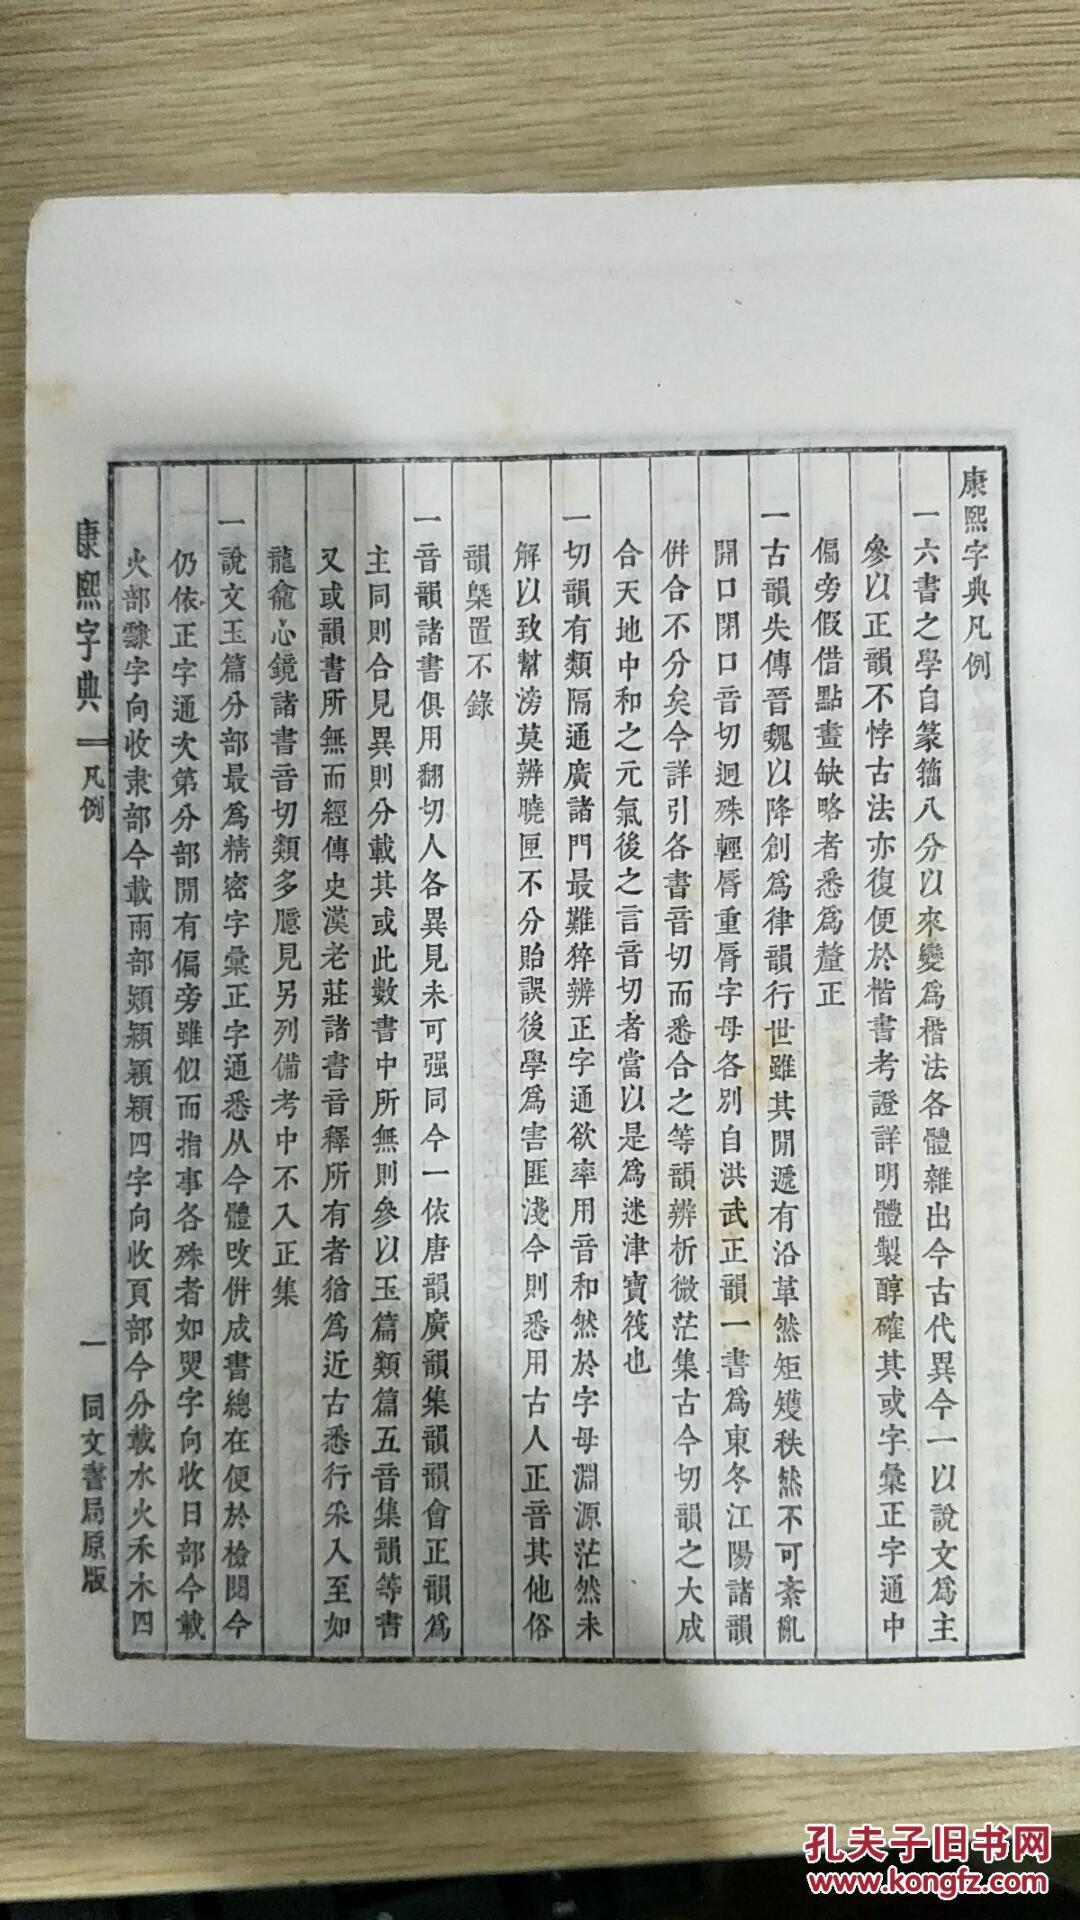 康熙字典凡例
一六書之學自篆籒八分以來變爲楷法各體雜出今古代異今一以說文爲主
參以正韻不悖古法亦復便於楷書考證詳明體製醇確其或字彙正字通中
偏旁假借點畫缺略者悉爲釐正
一古韻失傳晉魏以降創爲律韻行世雖其閒遞有沿革然矩矱秩然不可紊亂
開口閉口音切迥殊輕脣重脣字母各別自洪武正韻一書爲東冬江陽諸韻
倂合不分矣今詳引各書音切而悉合之等韻辨析微茫集古今切韻之大成
合天地中和之元氣後之言音切者當以是爲迷津寶筏也
一切韻有類隔通廣諸門最難猝辨正字通欲率用音和然於字母淵源茫然未
解以致幫滂莫辨曉匣不分貽誤後學爲害匪淺今則悉用古人正音其他俗
韻槩置不錄
一音韻諸書俱用翻切人各異見未可强同今一依唐韻廣韻集韻韻會正韻爲
主同則合見異則分載其或此數書中所無則參以玉篇類篇五音集韻等書
又或韻書所無而經傳史漢老莊諸書音釋所有者猶爲近古悉行采入至如
龍龕心鏡諸書音切類多臆見另列備考中不入正集
一說文玉篇分部最爲精密字彙正字通悉从今體改倂成書總在便於檢閱今
仍依正字通次第分部閒有偏旁雖似而指事各殊者如煛字向收日部今載
火部隸字向收隶部今載雨部潁熲穎顈四字向收頁部今分載水火禾木四
康熙字典 凡例 一 同文書局原版
孔夫子旧书网
www.kongfz.com